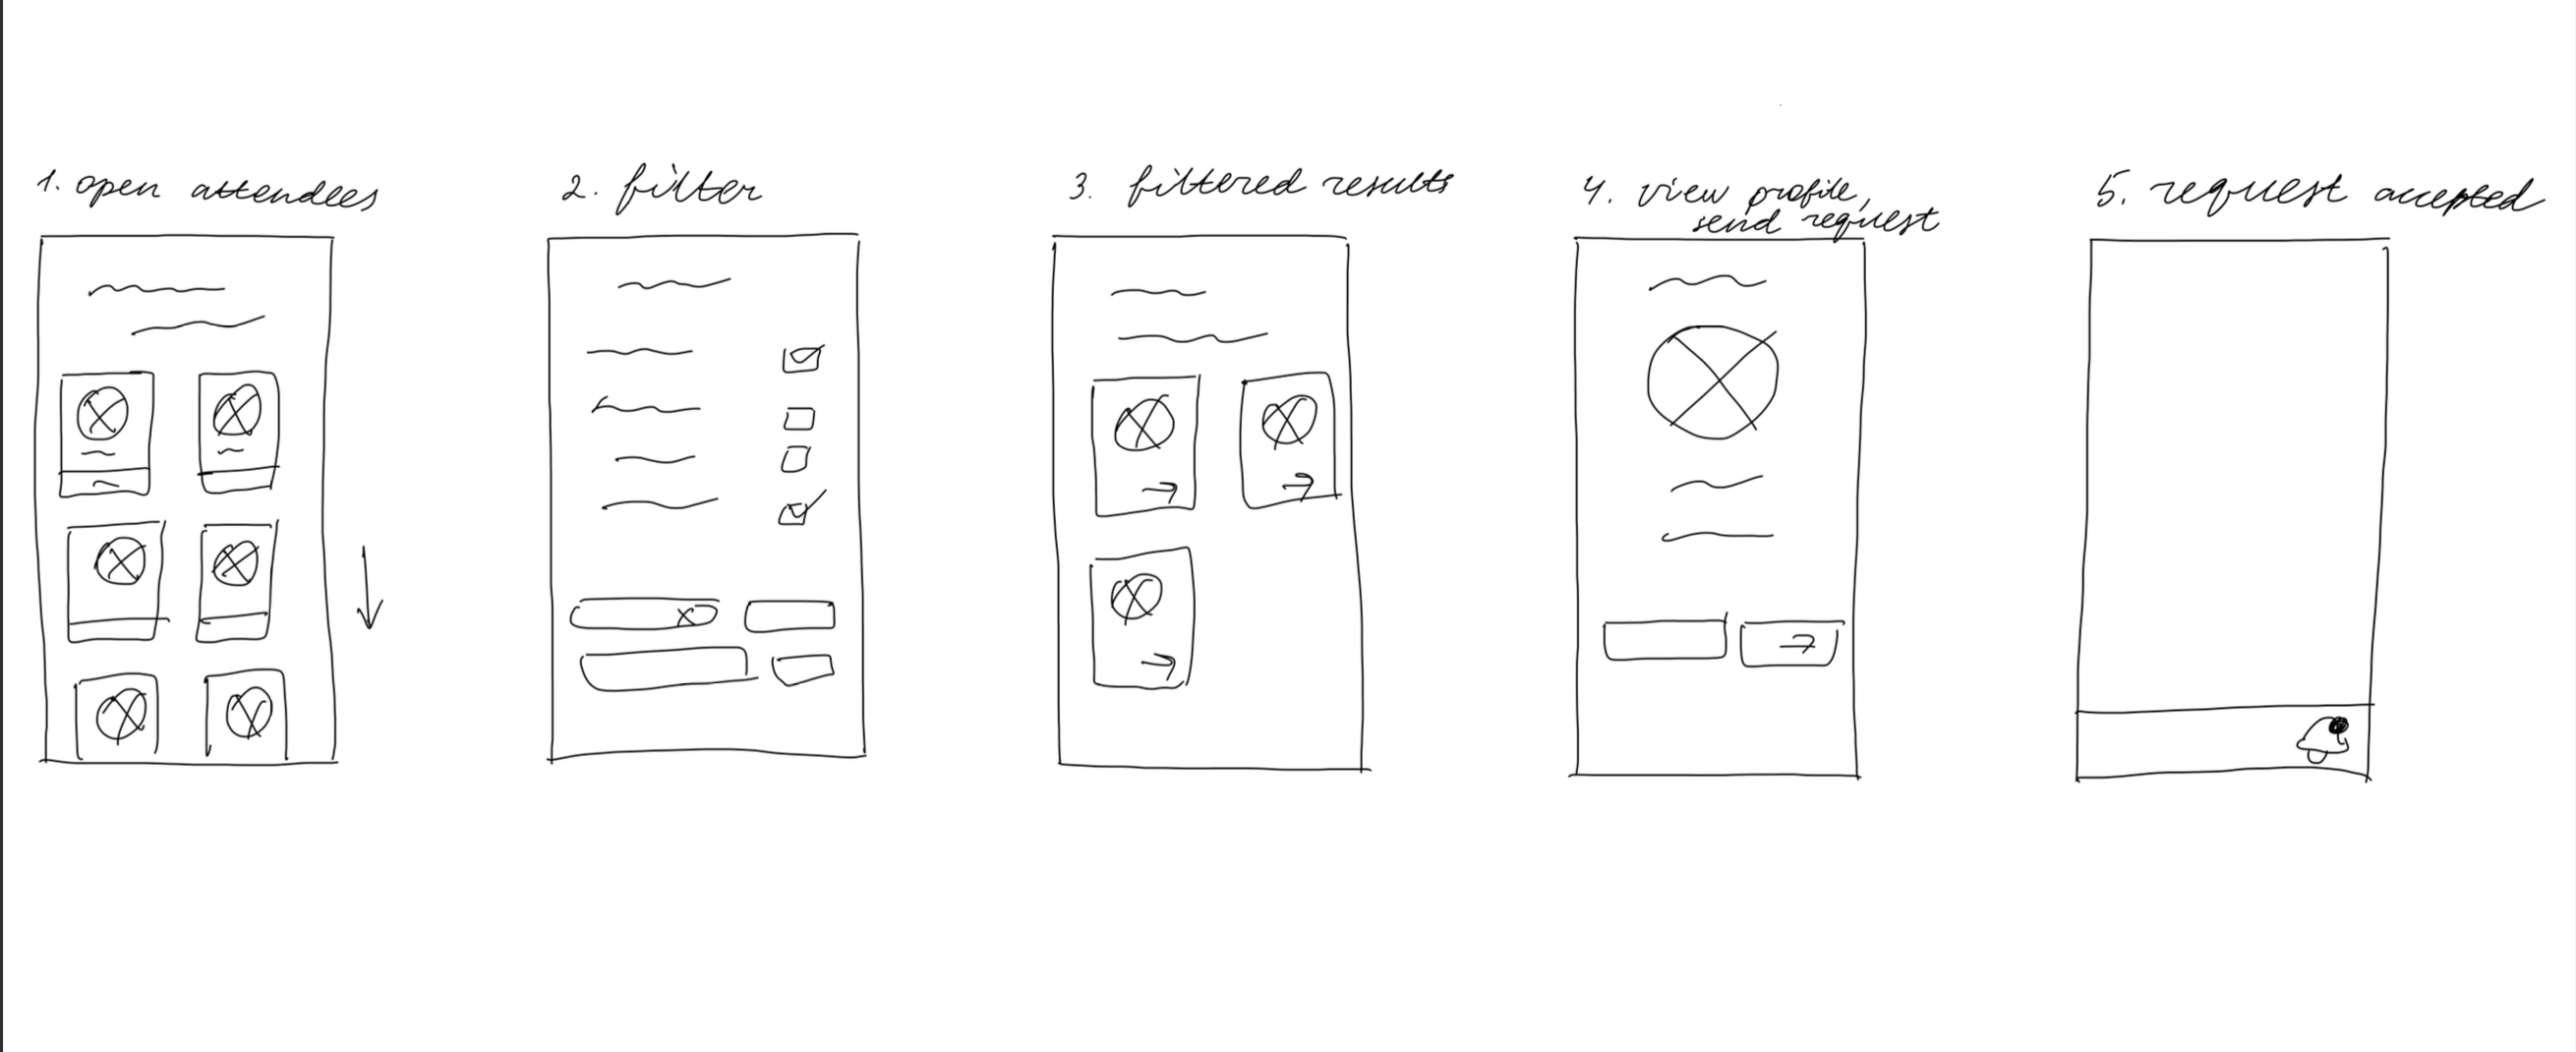 1. open attendees
2. filter
3. filtered results
4. view profile,
send request
5. request accepted